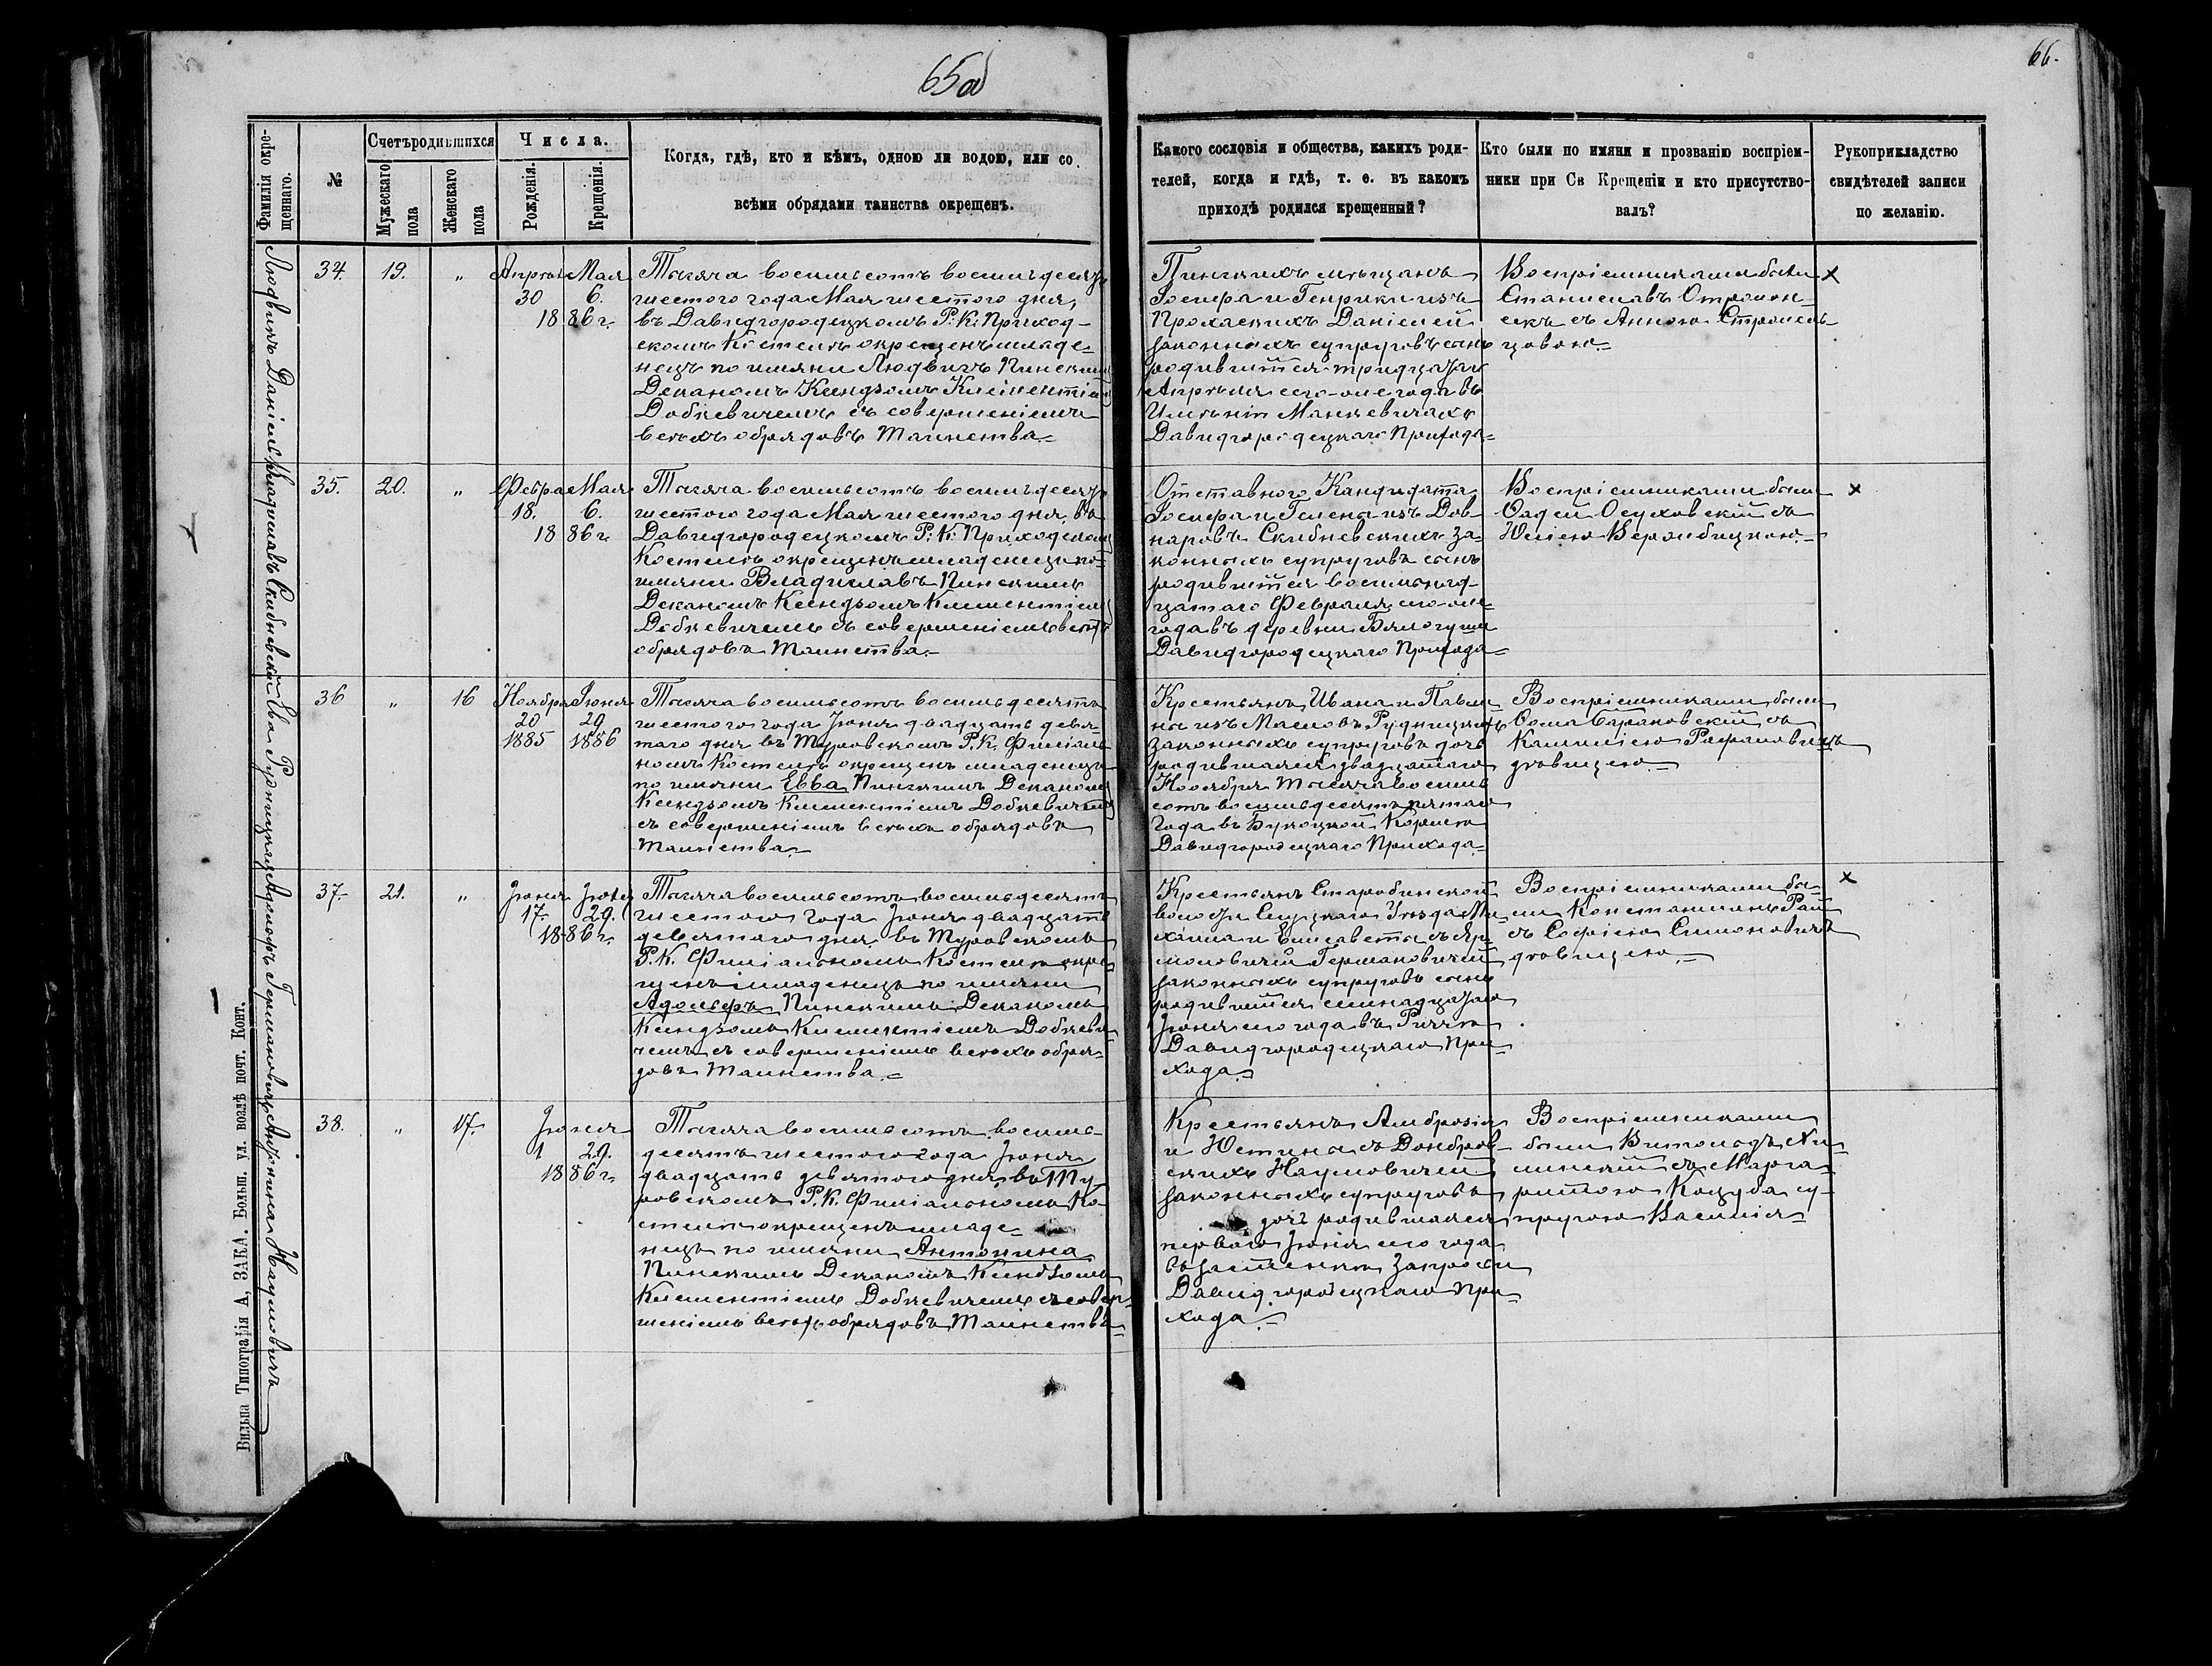 65об
66.
Фамилія окре-
щеннаго.
№
Счетъ родившихся
Мужескаго
пола
Женскаго
пола
Числа.
Рожденія.
Крещенія.
Когда, гдѣ, кто и кѣмъ, одною ли водою, или со
всѣми обрядами таинства окрещенъ.
Какого сословія и общества, какихъ роди-
телей, когда и гдѣ, т. е. въ какомъ
приходѣ родился крещенный?
Кто были по имяни и прозванію воспріем-
ники при Св Крещеніи и кто присутство-
валъ?
Рукоприкладство
свидѣтелей записи
по желанію.
Людвикъ Даніель
34.
19.
"
Апрѣля Мая
30 6.
1886 г.
Тысяча восемьсотъ восемьдесятъ
шестого года Мая шестого дня,
въ Давидгородецкомъ Р. К. Приход-
скомъ Костелѣ окрещенъ младе-
нецъ по имяни Людвигъ Пинскимъ
Деканомъ Ксендзомъ Климентіемъ
Добкевичемъ съ совершеніемъ
всѣхъ обрядовъ Таинства.
Пинскихъ мѣщанъ
Іосифа и Генрики изъ
Даніелей
законныхъ супруговъ сынъ
родившійся тридцатаго
Апрѣля сего-же года въ
Имѣніи Манкевичахъ
Давидгородецкаго Прихода
Воспріемниками были
Станиславъ
съ Анною
х
Владиславъ Скибневскій
35.
20.
"
Февра Мая
18. 6.
1886 г.
Тысяча восемьсотъ восемьдесятъ
шестого года Мая шестого дня, въ
Давидгородецкомъ Р. К. Приходскомъ
Костелѣ окрещенъ младенецъ по
имяни Владиславъ Пинскимъ
Деканомъ Ксендзомъ Климентіемъ
Добкевичемъ съ совершеніемъ всѣхъ
обрядовъ Таинства.
Отставного Кандидата
Іосифа и Гелены изъ Дов-
наровъ Скибневскихъ за-
конныхъ супруговъ сынъ
родившійся восемьнад-
цатаго Февраля сего-же
года въ деревни
Давидгородецкаго Прихода
Воспріемниками были
Осуховскій съ
Юліею
х
Ева Рудницкая
36
"
16
Ноября Іюня
20 29
1885 1886
Тысяча восемьсотъ восемьдесятъ
шестого года Іюня двадцать девя-
таго дня въ Туровскомъ Р. К. Филіаль-
номъ Костелѣ окрещенъ младенецъ
по имяни Евва Пинскимъ Деканомъ
Ксендзомъ Климентіемъ Добкевичемъ
съ совершеніемъ всѣхъ обрядовъ
Таинства.
Крестьянъ Ивана и Павли-
ны изъ Рудницкихъ
законныхъ супруговъ дочь
родившаяся двадцатаго
Ноября Тысяча восемь
сотъ восемьдесятъ пятаго
года въ
Давидгородецкаго Прихода.
Воспріемниками были
Ѳома Барановскій съ
Камиліею Рафаловичъ
дѣвицею.
Адольфъ Германовичъ
37.
21.
"
Іюня Іюня
17. 29.
1886 г.
Тысяча восемьсотъ восемьдесятъ
шестого года Іюня двадцать
девятаго дня, въ Туровскомъ
Р. К. Филіальномъ Костелѣ окре-
щенъ младенецъ по имяни
Адольфъ Пинскимъ Деканомъ
Ксендзомъ Климентіемъ Добкеви-
чемъ съ совершеніемъ всѣхъ обря-
довъ Таинства.
Крестьянъ Старобинской
волости Слуцкаго Уѣзда Ми-
хаила и Елисаветы съ Яр-
моловичей Германовичей
законныхъ супруговъ сынъ
родившійся семнадцатаго
Іюня сего года въ
Давидгородецкаго При-
хода.
Воспріемниками бы-
ли Константинъ
съ Софіею Симоновичъ
дѣвицею.
х
Антонина Наумовичъ
38.
"
17.
Іюня
1 29.
1886 г.
Тысяча восемьсотъ восемь-
десятъ шестого года Іюня
двадцать девятого дня, въ Ту-
ровскомъ Р. К. Филіальномъ Ко-
стелѣ окрещенъ младе-
нецъ по имяни Антонина
Пинскимъ Деканомъ Ксендзомъ
Климентіемъ Добкевичемъ съ совер-
шеніемъ всѣхъ обрядовъ Таинства
Крестьянъ Амброзія
и Юстины съ Домбров-
скихъ Наумовичей
законныхъ супруговъ
дочь родившаяся
перваго Іюня сего года
въ застѣнкѣ
Давидгородецкаго При-
хода.
Воспріемниками
были Витольдъ
съ Марга-
ритою Коцуба су-
пругою Василія
Вильна Типографія А, ЗАКА. Больш. ул. возлѣ почт. Конт.